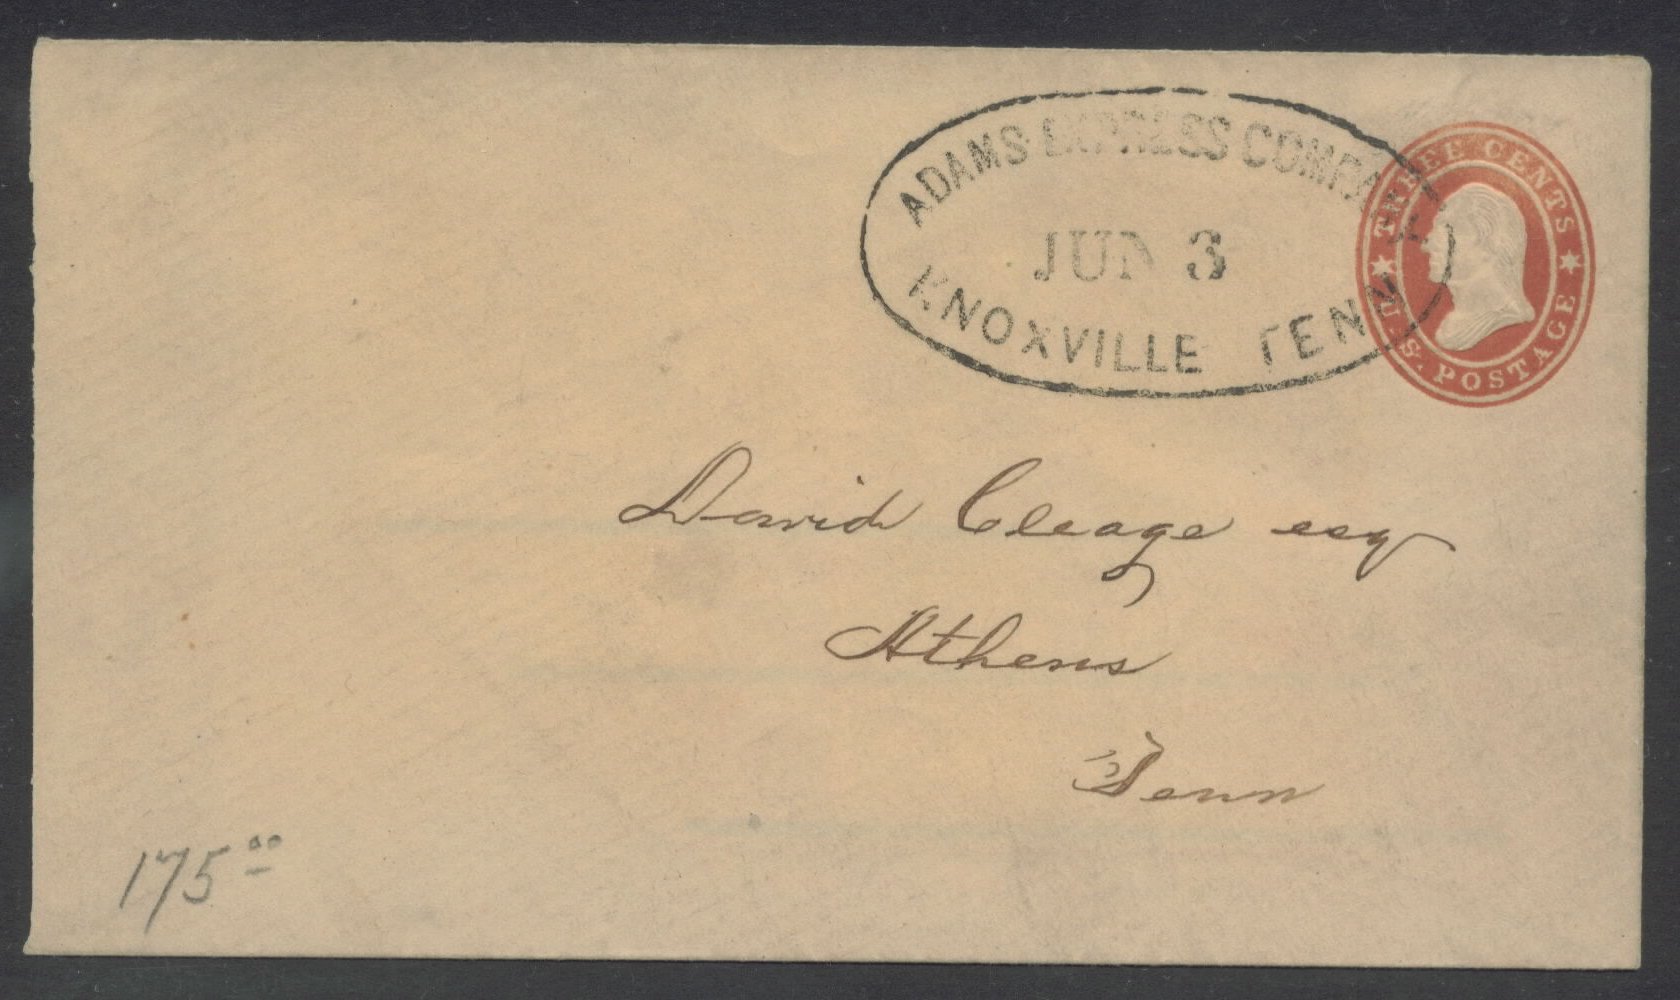 ADAMS EXPRESS COMPANY
JUN 3
KNOXVILLE TENN
THREE CENTS
U.S. POSTAGE
David Cleage esq
Athens
Tenn
175 00